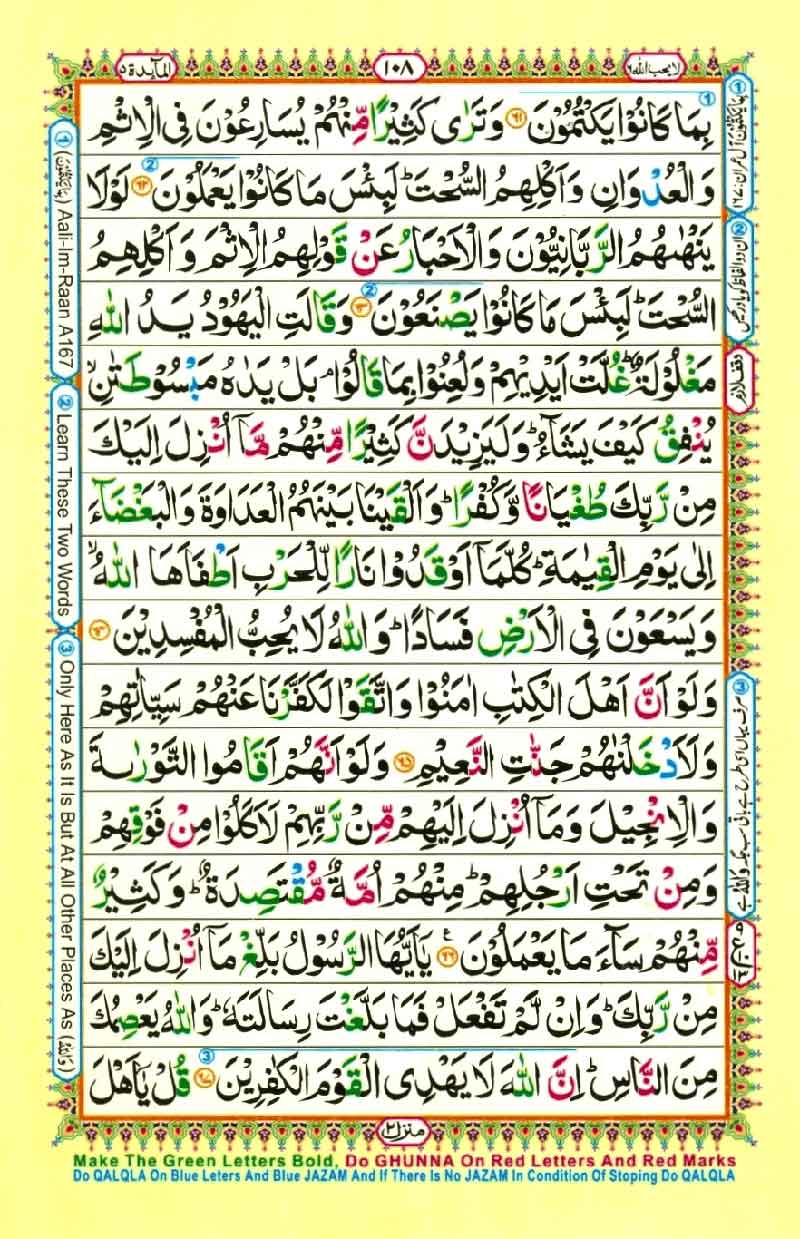 لا يحب الله ٦
١٠٨
المآيدة ٥
بِمَا كَانُوْا يَكْتُمُوْنَ ۝٦١ وَتَرٰى كَثِيْرًا مِّنْهُمْ يُسَارِعُوْنَ فِى الْاِثْمِ
وَالْعُدْوَانِ وَاَكْلِهِمُ السُّحْتَ ؕ لَبِئْسَ مَا كَانُوْا يَعْمَلُوْنَ ۝٦٢ لَوْلَا
يَنْهٰىهُمُ الرَّبَّانِيُّوْنَ وَالْاَحْبَارُ عَنْ قَوْلِهِمُ الْاِثْمَ وَاَكْلِهِمُ
السُّحْتَ ؕ لَبِئْسَ مَا كَانُوْا يَصْنَعُوْنَ ۝٦٣ وَقَالَتِ الْيَهُوْدُ يَدُ اللّٰهِ
مَغْلُوْلَةٌ ؕ غُلَّتْ اَيْدِيْهِمْ وَلُعِنُوْا بِمَا قَالُوْا ۘ بَلْ يَدٰهُ مَبْسُوْطَتٰنِ ۙ
يُنْفِقُ كَيْفَ يَشَآءُ ؕ وَلَيَزِيْدَنَّ كَثِيْرًا مِّنْهُمْ مَّاۤ اُنْزِلَ اِلَيْكَ
مِنْ رَّبِّكَ طُغْيَانًا وَّكُفْرًا ؕ وَاَلْقَيْنَا بَيْنَهُمُ الْعَدَاوَةَ وَالْبَغْضَآءَ
اِلٰى يَوْمِ الْقِيٰمَةِ ؕ كُلَّمَاۤ اَوْقَدُوْا نَارًا لِّلْحَرْبِ اَطْفَاَهَا اللّٰهُ ۙ
وَيَسْعَوْنَ فِى الْاَرْضِ فَسَادًا ؕ وَاللّٰهُ لَا يُحِبُّ الْمُفْسِدِيْنَ ۝٦٤
وَلَوْ اَنَّ اَهْلَ الْكِتٰبِ اٰمَنُوْا وَاتَّقَوْا لَكَفَّرْنَا عَنْهُمْ سَيِّاٰتِهِمْ
وَلَاَدْخَلْنٰهُمْ جَنّٰتِ النَّعِيْمِ ۝٦٥ وَلَوْ اَنَّهُمْ اَقَامُوا التَّوْرٰىةَ
وَالْاِنْجِيْلَ وَمَاۤ اُنْزِلَ اِلَيْهِمْ مِّنْ رَّبِّهِمْ لَاَكَلُوْا مِنْ فَوْقِهِمْ
وَمِنْ تَحْتِ اَرْجُلِهِمْ ؕ مِنْهُمْ اُمَّةٌ مُّقْتَصِدَةٌ ؕ وَكَثِيْرٌ
مِّنْهُمْ سَآءَ مَا يَعْمَلُوْنَ ۝٦٦ يٰۤاَيُّهَا الرَّسُوْلُ بَلِّغْ مَاۤ اُنْزِلَ اِلَيْكَ
مِنْ رَّبِّكَ ؕ وَاِنْ لَّمْ تَفْعَلْ فَمَا بَلَّغْتَ رِسَالَتَهٗ ؕ وَاللّٰهُ يَعْصِمُكَ
مِنَ النَّاسِ ؕ اِنَّ اللّٰهَ لَا يَهْدِى الْقَوْمَ الْكٰفِرِيْنَ ۝٦٧ قُلْ يٰۤاَهْلَ
منزل ٢
① (بِمَا يَكْتُمُوْنَ) Aali-Im-Raan A167
② Learn These Two Words
③ Only Here As It Is But At All Other Places As (وَاللّٰهُ)
② ان دو الفاظ کو یاد رکھیں
③ صرف یہاں اسی طرح ہے باقی سب جگہ واللہ ہے
Make The Green Letters Bold, Do GHUNNA On Red Letters And Red Marks
Do QALQLA On Blue Leters And Blue JAZAM And If There Is No JAZAM In Condition Of Stoping Do QALQLA